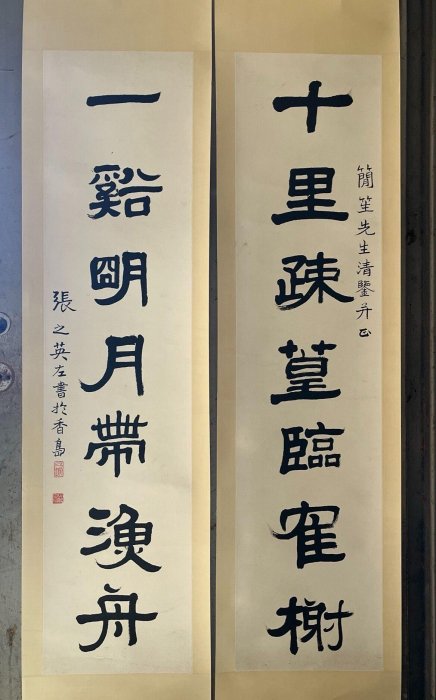 十里疎篁臨寉榭
簡笙先生清鑒并正
一谿明月帶漁舟
張之英左書於香島